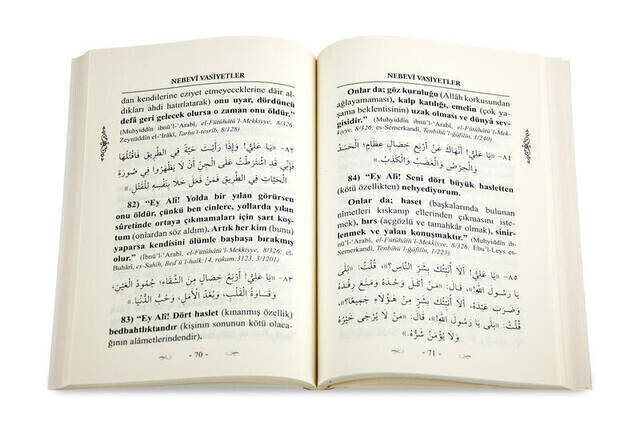 NEBEVÎ VASİYETLER
dan kendilerine eziyet etmeyeceklerine dâir al-
dıkları ahdi hatırlatarak) onu uyar, dördüncü
defâ geri gelecek olursa o zaman onu öldür."
(Muhyiddîn ibnü'l-'Arabî, el-Fütûhâtü'l-Mekkiyye, 8/326;
Zeynüddîn el-'Irâkî, Tarhu't-tesrîb, 8/128)
٨٢- «يَا عَلِيُّ! وَإِذَا رَأَيْتَ حَيَّةً فِي الطَّرِيقِ فَاقْتُلْهَا
فَإِنِّي قَدِ اشْتَرَطْتُ عَلَى الْجِنِّ أَنْ لَا يَظْهَرُوا فِي صُورَةِ
الْحَيَّاتِ فِي الطَّرِيقِ فَمَنْ فَعَلَ خَلَّا بِنَفْسِهِ لِلْقَتْلِ.»
82) "Ey Ali! Yolda bir yılan görürsen
onu öldür, çünkü ben cinlere, yollarda yılan
sûretinde ortaya çıkmamaları için şart koş-
tum (onlardan söz aldım). Artık her kim (bunu)
yaparsa kendisini ölümle başbaşa bırakmış
olur." (İbnü'l-'Arabî, el-Fütûhâtü'l-Mekkiyye, 8/326; el-
Buhârî, es-Sahîh, Bed'ü'l-halk:14, rakam:3123, 3/1201)
٨٣- «يَا عَلِيُّ! أَرْبَعُ خِصَالٍ مِنَ الشَّقَاءِ: جُمُودُ الْعَيْنِ،
وَقَسَاوَةُ الْقَلْبِ، وَبُعْدُ الْأَمَلِ، وَحُبُّ الدُّنْيَا.»
83) "Ey Ali! Dört haslet (kınanmış özellik)
bedbahtlıktandır (kişinin sonunun kötü olaca-
ğının alâmetlerindendir).
- 70 -
NEBEVÎ VASİYETLER
Onlar da; göz kuruluğu (Allâh korkusundan
ağlayamaması), kalp katılığı, emelin (çok ya-
şama beklentisinin) uzak olması ve dünyâ sev-
gisidir." (Muhyiddîn ibnü'l-'Arabî, el-Fütûhâtü'l-Mek-
kiyye, 8/326; es-Semerkandî, Tenbîhü'l-ğâfilîn, 1/240)
٨٤- «يَا عَلِيُّ! أَنْهَاكَ عَنْ أَرْبَعِ خِصَالٍ عِظَامٍ: الْحَسَدِ
وَالْحِرْصِ وَالْغَضَبِ وَالْكَذِبِ.»
84) "Ey Ali! Seni dört büyük hasletten
(kötü özellikten) nehyediyorum.
Onlar da; haset (başkalarında bulunan
nîmetleri kıskanıp ellerinden çıkmasını iste-
mek), hırs (açgözlü ve tamahkâr olmak), sinir-
lenmek ve yalan konuşmaktır." (Muhyiddîn ib-
nü'l-'Arabî, el-Fütûhâtü'l-Mekkiyye, 8/326; Ebu'l-Leys es-
Semerkandî, Tenbîhü'l-ğâfilîn, 1/223)
٨٥- «يَا عَلِيُّ! أَلَا أُنَبِّئُكَ بِشَرِّ النَّاسِ؟»، قُلْتُ: «بَلَى
يَا رَسُولَ اللهِ!»، قَالَ: «مَنْ أَكَلَ وَحْدَهُ وَمَنَعَ رِفْدَهُ
وَضَرَبَ عَبْدَهُ، أَلَا أُنَبِّئُكَ بِشَرٍّ مِنْ هَؤُلَاءِ جَمِيعًا؟»،
قُلْتُ: «بَلَى يَا رَسُولَ اللهِ!»، قَالَ: «مَنْ لَا يُرْجَى خَيْرُهُ
وَلَا يُؤْمَنُ شَرُّهُ.»
- 71 -